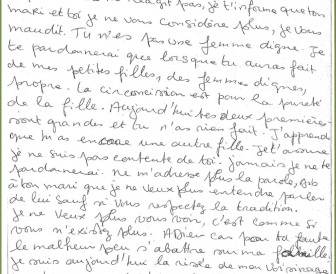 réagit pas, je t'informe que ton
mari et toi je ne vous considère plus, je vous
maudit. Tu n'es pas une femme digne. Je
te pardonnerai que lorsque tu auras fait
de mes petites filles, des femmes dignes,
propre. La circoncision est pour la pureté
de la fille. Aujourd'hui tes deux premières
sont grandes et tu n'as rien fait. J'apprends
que tu as encore une autre fille. Je t'assure
je ne suis pas contente de toi. jamais je ne te
pardonnerai. ne m'adresse plus la parole,
à ton mari que je ne veux plus entendre parler
de lui sauf si vous respectez la tradition.
Je ne veux plus vous voir, c'est comme si
vous n'existez plus. Adieu car pour ta faute
le malheur peu s'abattre sur ma famille
Je suis aujourd'hui la risée de mon voisinage